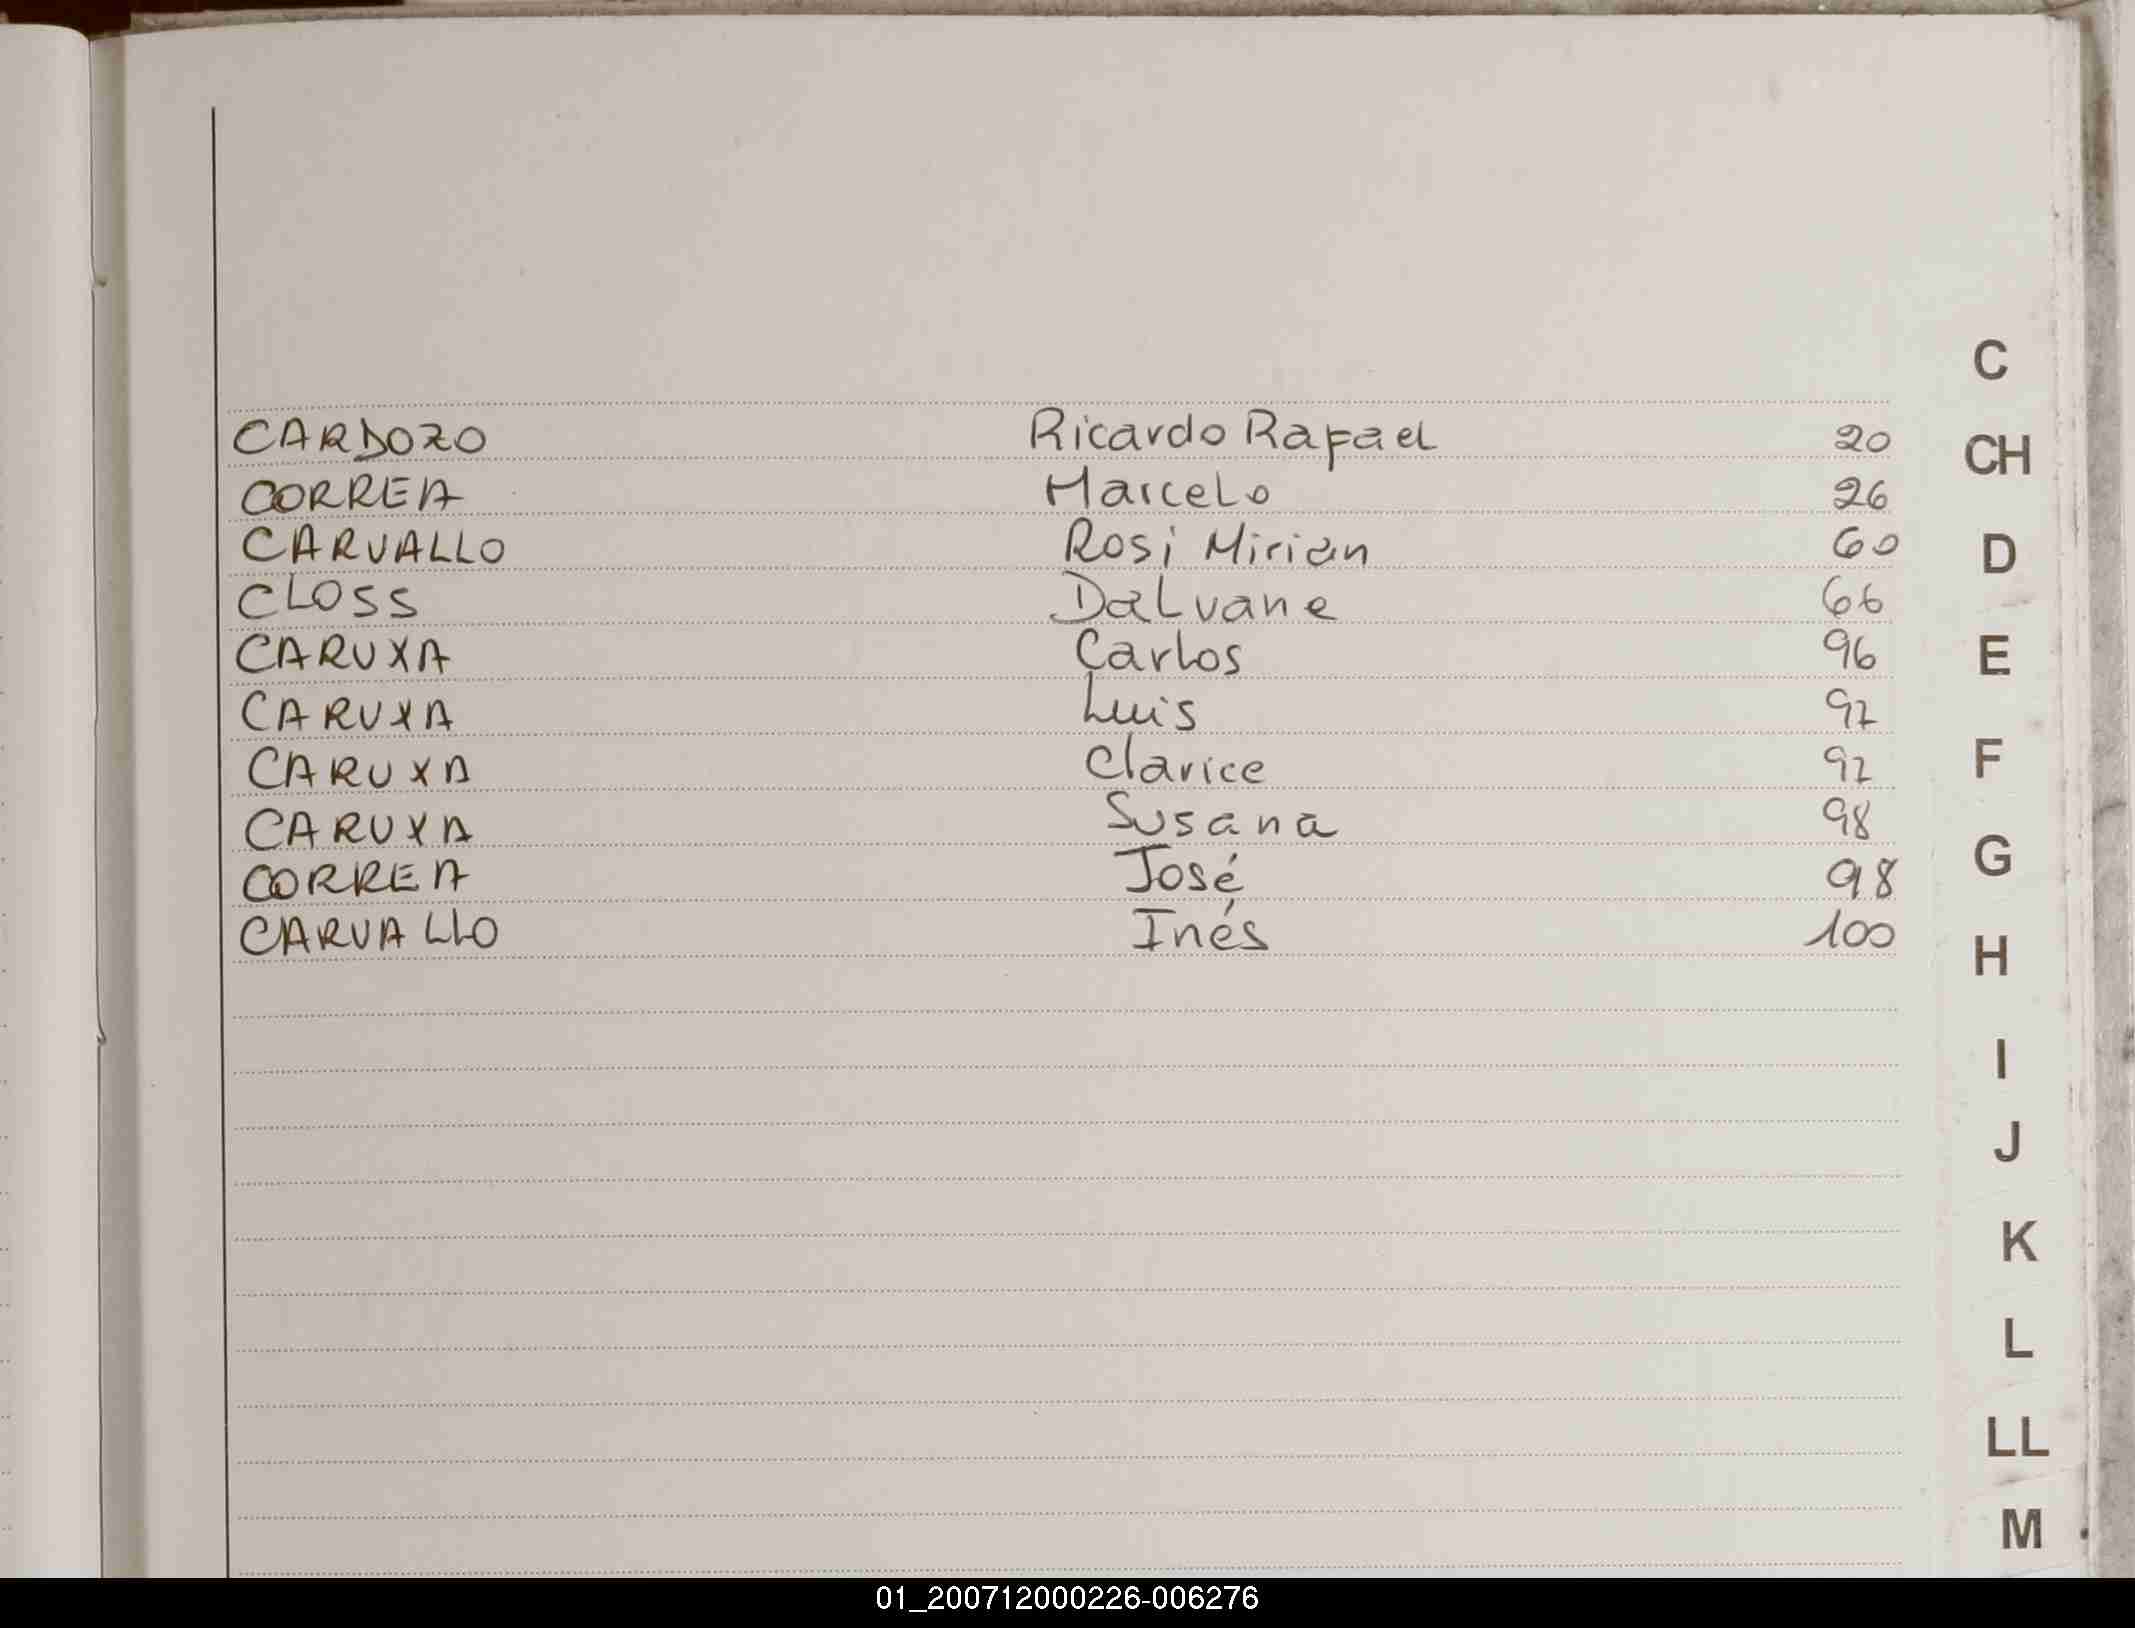 CARDOZO Ricardo Rafael 20
CORREA Marcelo 26
CARVALLO Rosi Mirian 60
CLOSS Dalvane 66
CARUXA Carlos 96
CARUXA Luis 97
CARUXA Clarice 97
CARUXA Susana 98
CORREA José 98
CARVALLO Inés 100
C
CH
D
E
F
G
H
I
J
K
L
LL
M
01_200712000226-006276